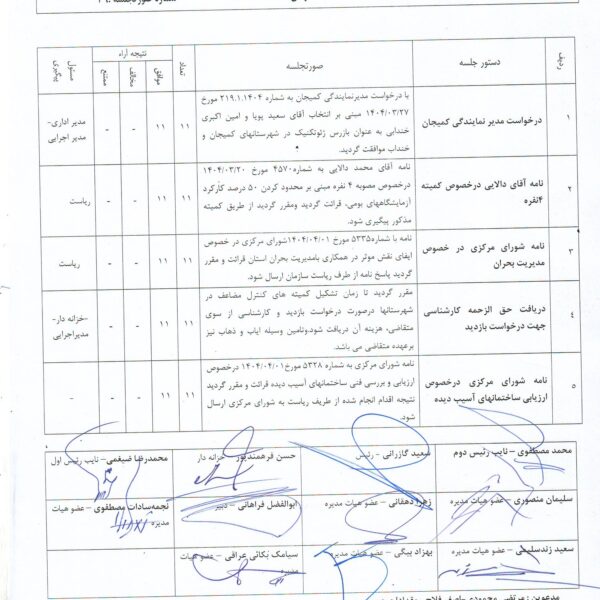 ردیف
دستور جلسه
صورتجلسه
تعداد
نتیجه آراء
موافق
مخالف
ممتنع
مسئول پیگیری
۱
درخواست مدیر نمایندگی کمیجان
با درخواست مدیرنمایندگی کمیجان به شماره ۲۱۹.۱.۱۴۰۴ مورخ
۱۴۰۴/۰۳/۲۷ مبنی بر انتخاب آقای سعید پویا و امین اکبری
خندابی به عنوان بازرس ژئوتکنیک در شهرستانهای کمیجان و
خنداب موافقت گردید.
۱۱
۱۱
-
-
مدیر اداری-
مدیر اجرایی
۲
نامه آقای دالایی درخصوص کمیته
۴نفره
نامه آقای محمد دالایی به شماره۴۵۷۰ مورخ ۱۴۰۴/۰۳/۲۰
درخصوص مصوبه ۴ نفره مبنی بر محدود کردن ۵۰ درصد کارکرد
آزمایشگاههای بومی، قرائت گردید ومقرر گردید از طریق کمیته
مذکور پیگیری شود.
۱۱
۱۱
-
-
ریاست
۳
نامه شورای مرکزی در خصوص
مدیریت بحران
نامه با شماره۵۳۳۵ مورخ ۱۴۰۴/۰۴/۰۱شورای مرکزی در خصوص
ایفای نقش موثر در همکاری بامدیریت بحران استان قرائت و مقرر
گردید پاسخ نامه از طرف ریاست سازمان ارسال شود.
۱۱
۱۱
-
-
ریاست
۴
دریافت حق الزحمه کارشناسی
جهت درخواست بازدید
مقرر گردید تا زمان تشکیل کمیته های کنترل مضاعف در
شهرستانها درصورت درخواست بازدید و کارشناسی از سوی
متقاضی، هزینه آن دریافت شود.وتامین وسیله ایاب و ذهاب نیز
برعهده متقاضی می باشد.
۱۱
۱۱
-
-
-خزانه دار-
مدیراجرایی
۵
نامه شورای مرکزی درخصوص
ارزیابی ساختمانهای آسیب دیده
نامه شورای مرکزی به شماره ۵۳۲۸ مورخ۱۴۰۴/۰۴/۰۱ درخصوص
ارزیابی و بررسی فنی ساختمانهای آسیب دیده قرائت و مقرر گردید
نتیجه اقدام انجام شده از طریف ریاست به شورای مرکزی ارسال
شود.
۱۱
۱۱
-
-
-
محمد مصطفوی – نایب رئیس دوم
سعید گازرانی - رئیس
حسن فرهمندپور – خزانه دار
محمدرضا ضیغمی – نایب رئیس اول
سلیمان منصوری – عضو هیات مدیره
زهرا دهقانی – عضو هیات مدیره
ابوالفضل فراهانی – دبیر
نجمه‌سادات مصطفوی – عضو هیات
مدیره
سعید زندسلیمی – عضو هیات مدیره
بهزاد بیگی – عضو هیات مدیره
سیامک بکائی عراقی – عضو هیات
مدیره